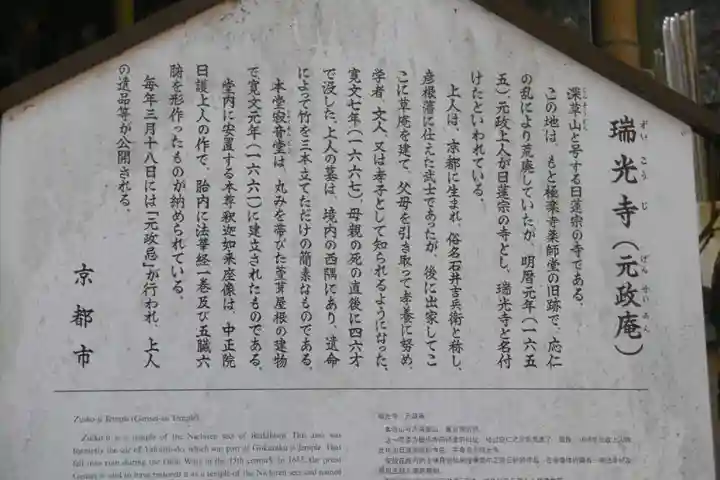 瑞光寺（元政庵）
ずいこうじ
げんせいあん
深草山と号する日蓮宗の寺である。
この地は、もと極楽寺薬師堂の旧跡で、応仁
の乱により荒廃していたが、明暦元年（一六五
五）、元政上人が日蓮宗の寺とし、瑞光寺と名付
けたといわれている。
上人は、京都に生まれ、俗名石井吉兵衛と称し、
彦根藩に仕えた武士であったが、後に出家してこ
こに草庵を建て、父母を引き取って孝養に努め、
学者、文人、又は孝子として知られるようになった。
寛文七年（一六六七）、母親の死の直後に四六才
で没した。上人の墓は、境内の西隅にあり、遺命
によって竹を三本立てただけの簡素なものである。
本堂寂音堂は、丸みを帯びた萱葺屋根の建物
で寛文元年（一六六一）に建立されたものである。
堂内に安置する本尊釈迦如来座像は、中正院
日護上人の作で、胎内に法華経一巻及び五臓六
腑を形作ったものが納められている。
毎年三月十八日には「元政忌」が行われ、上人
の遺品等が公開される。
京都市
Zuiko-ji Temple (Gensei-an Temple)
Zuiko-ji is a temple of the Nichiren sect of Buddhism. This area was
formerly the site of Yakushido, which was part of Gokuraku-ji Temple. That
fell into ruin during the Onin Wars in the 15th century. In 1655, the priest